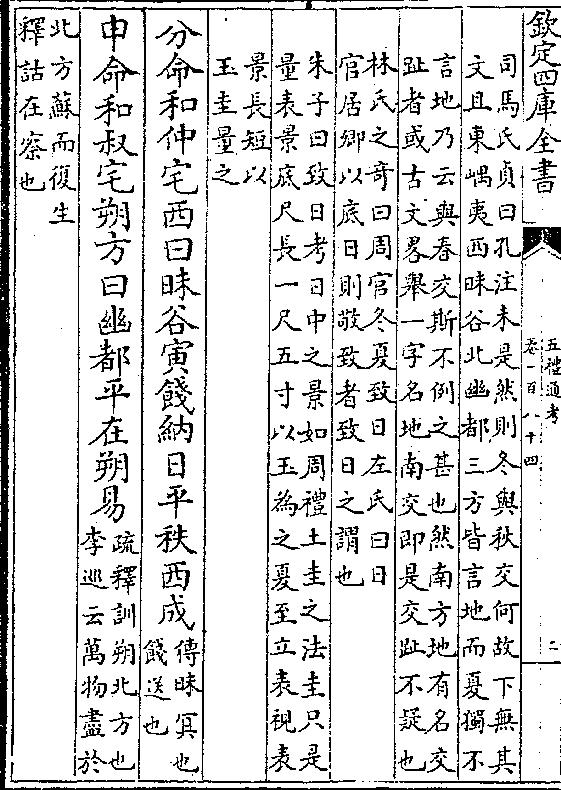 欽定四庫全書
五禮通考
卷一百八十四
二
司馬氏貞曰孔注未是然則冬與秋交何故下無其
文且東嵎夷西昧谷北幽都三方皆言地而夏獨不
言地乃云與春交斯不例之甚也然南方地有名交
趾者或古文畧舉一字名地南交即是交趾不疑也
林氏之奇曰周官冬夏致日左氏曰日
官居卿以底日則敬致者致日之謂也
朱子曰致日考日中之景如周禮土圭之法圭只是
量表景底尺長一尺五寸以玉為之夏至立表視表
景長短以
玉圭量之
分命和仲宅西曰昧谷寅餞納日平秩西成
傳昧冥也
餞送也
申命和叔宅朔方曰幽都平在朔易
疏釋訓朔北方也
李巡云萬物盡於
北方蘇而復生
釋詁在察也